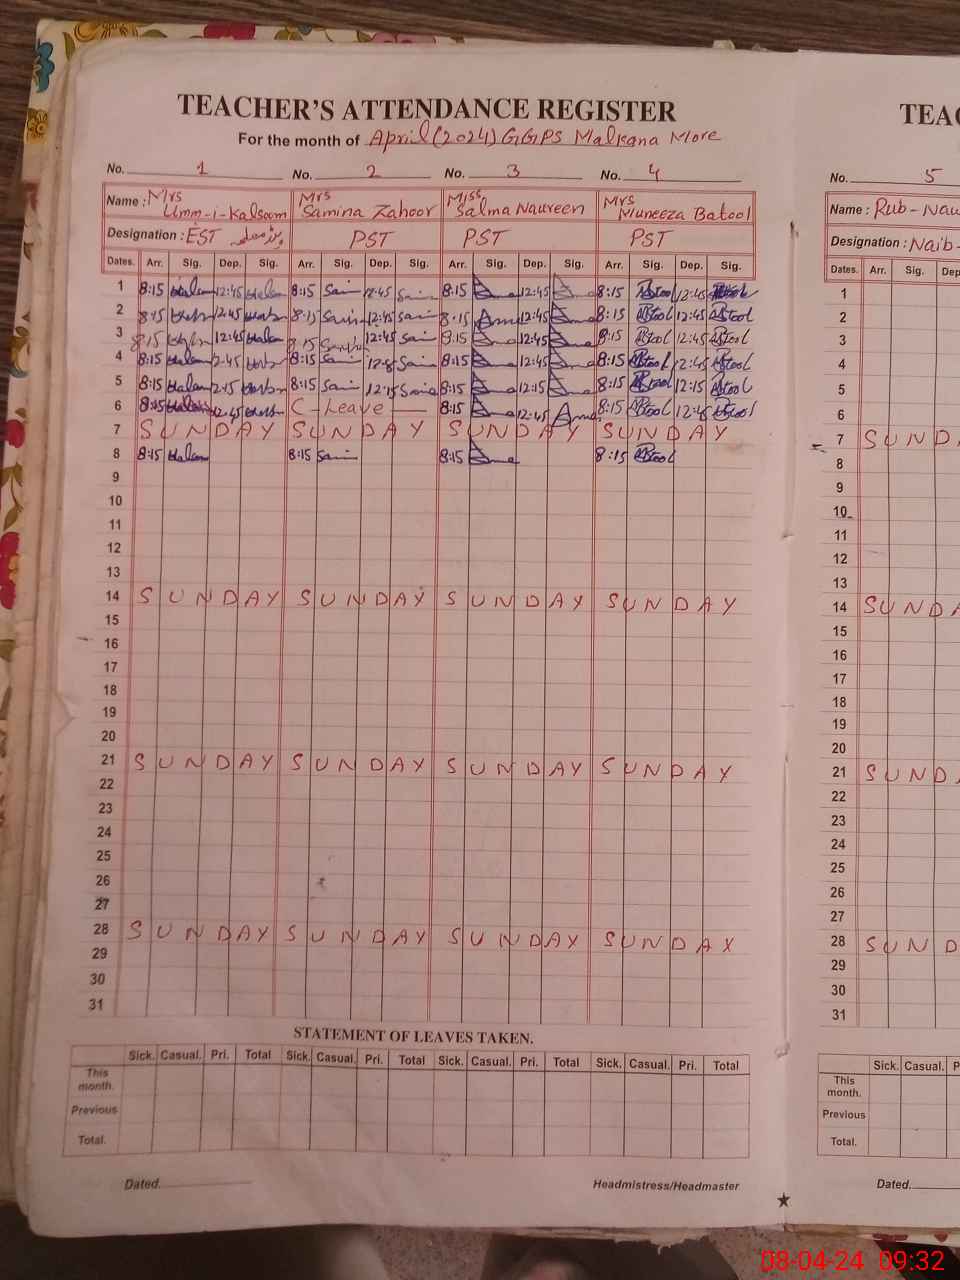 TEACHER'S ATTENDANCE REGISTER
For the month of April (2024) GGPS Malkana More
No. 1 No. 2 No. 3 No. 4
Name : Mrs Umm-i-Kalsoom Mrs Samina Zahoor Miss Salma Naureen Mrs Muneeza Batool
Designation : EST PST PST PST
Dates. Arr. Sig. Dep. Sig. Arr. Sig. Dep. Sig. Arr. Sig. Dep. Sig. Arr. Sig. Dep. Sig.
1 8:15 12:45 8:15 12:45 8:15 12:45 8:15 12:45
2 8:15 12:45 8:15 12:45 8:15 12:45 8:15 12:45
3 8:15 12:45 8:15 12:45 8:15 12:45 8:15 12:45
4 8:15 12:45 8:15 8:15 12:45 8:15 12:45
5 8:15 12:15 8:15 12:15 8:15 12:15 8:15 12:15
6 8:15 12:45 C - Leave 8:15 12:45 8:15 12:45
7 SUNDAY SUNDAY SUNDAY SUNDAY
8 8:15 8:15 8:15 8:15
9
10
11
12
13
14 SUNDAY SUNDAY SUNDAY SUNDAY
15
16
17
18
19
20
21 SUNDAY SUNDAY SUNDAY SUNDAY
22
23
24
25
26
27
28 SUNDAY SUNDAY SUNDAY SUNDAY
29
30
31
STATEMENT OF LEAVES TAKEN.
Sick. Casual. Pri. Total Sick. Casual. Pri. Total Sick. Casual. Pri. Total Sick. Casual. Pri. Total
This month.
Previous
Total.
Dated. Headmistress/Headmaster
TEAC
No. 5
Name : Rub-Nau
Designation : Naib-
Dates. Arr. Sig. Dep
1
2
3
4
5
6
7 SUND
8
9
10
11
12
13
14 SUND
15
16
17
18
19
20
21 SUND
22
23
24
25
26
27
28 SUND
29
30
31
Sick. Casual. P
This month.
Previous
Total.
Dated.
08-04-24 09:32